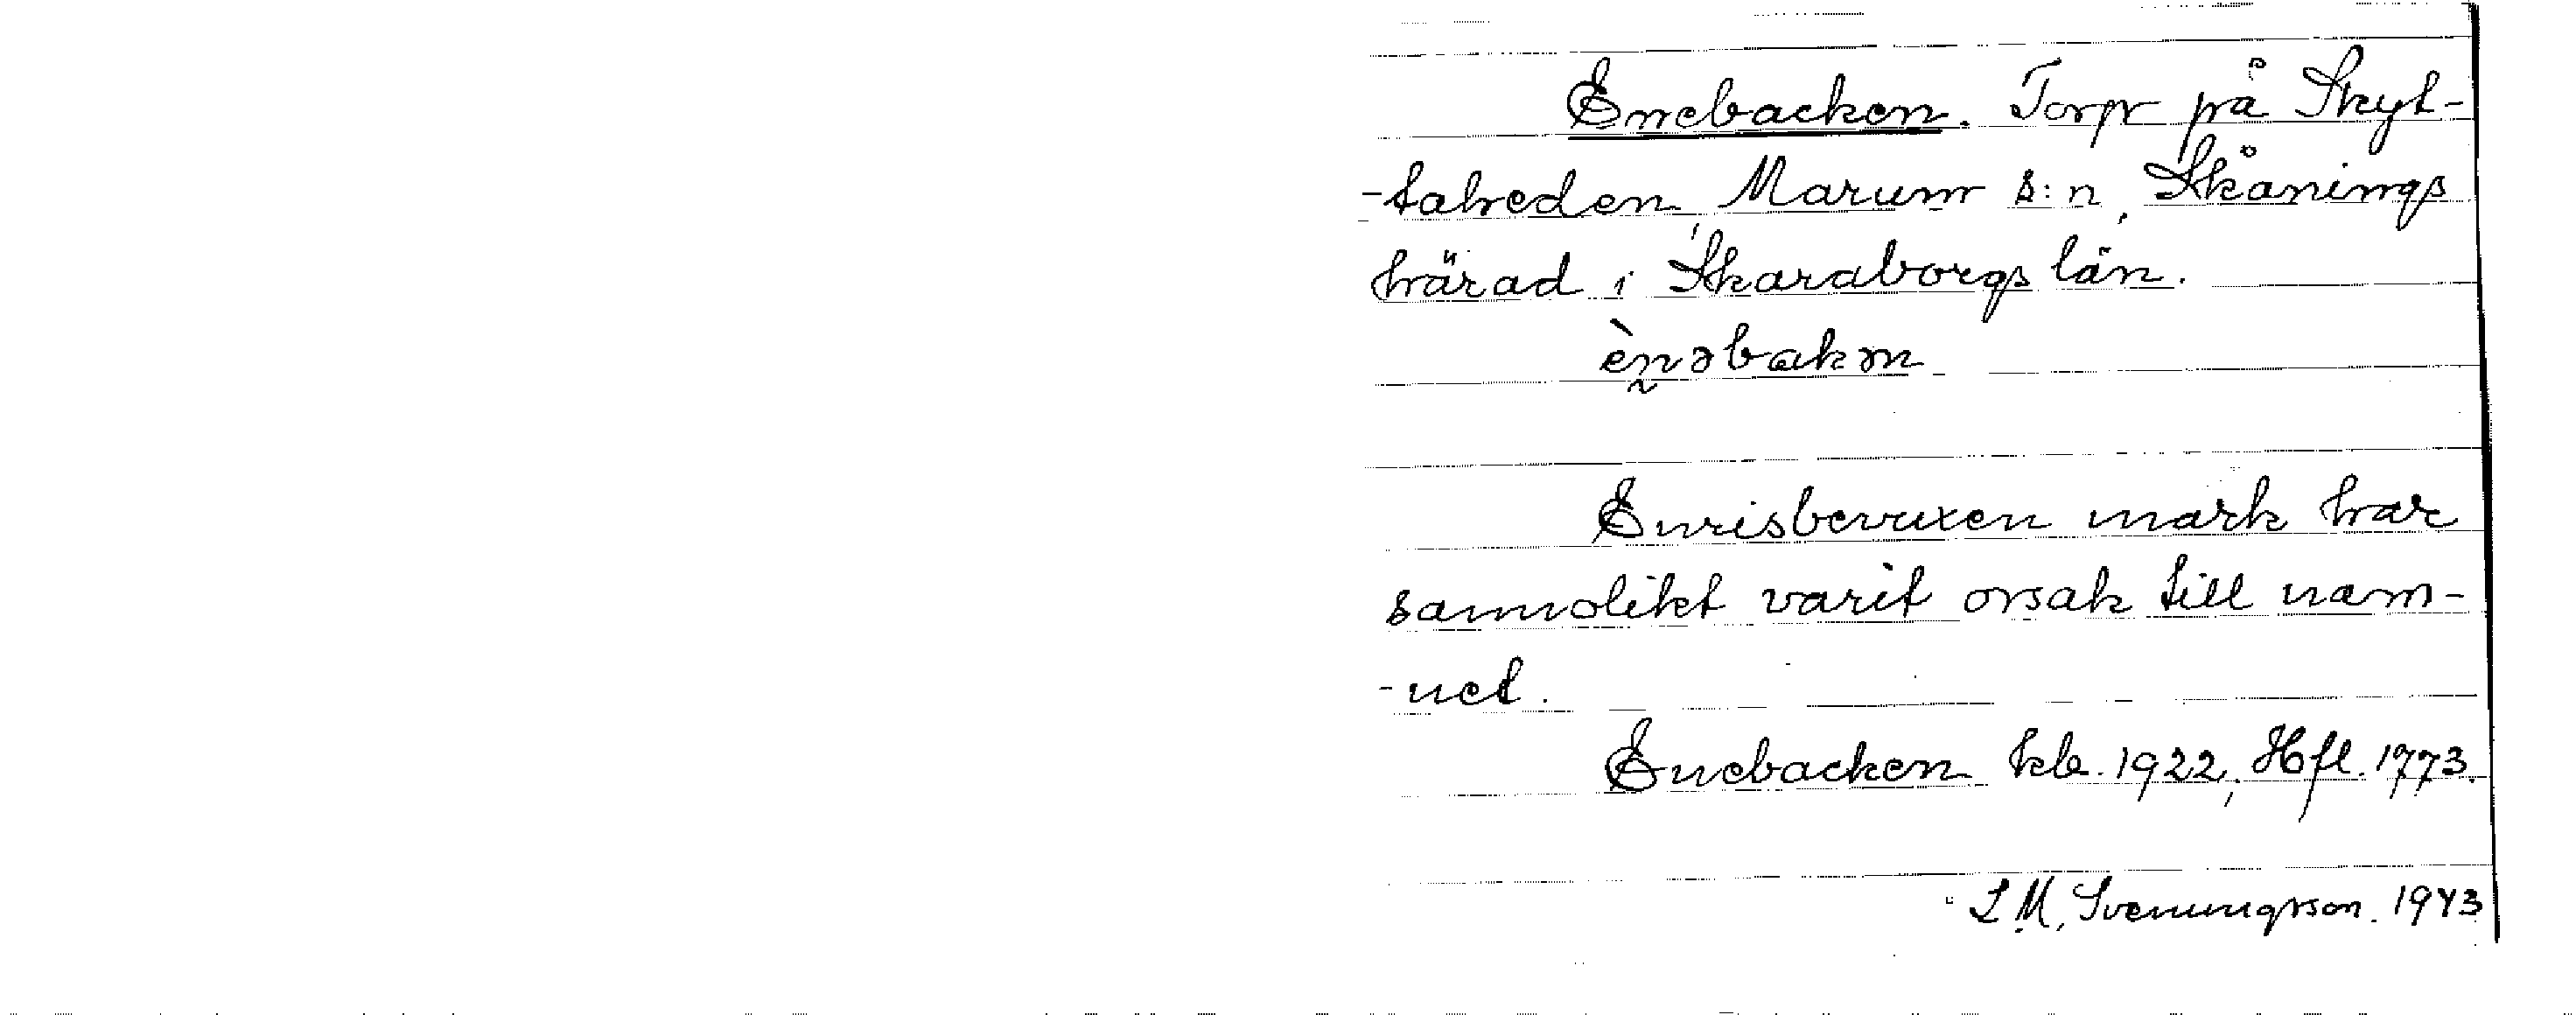 Enebacken. Torp på Skyt-
-tabreden, Marum s:n, Skånings
härad i Skaraborgs län.
ènəbakən
Enrisbevuxen mark har
sannolikt varit orsak till nam-
-net.
Enebacken kb. 1922, Hfl. 1773.
L. M. Svenungsson. 1943